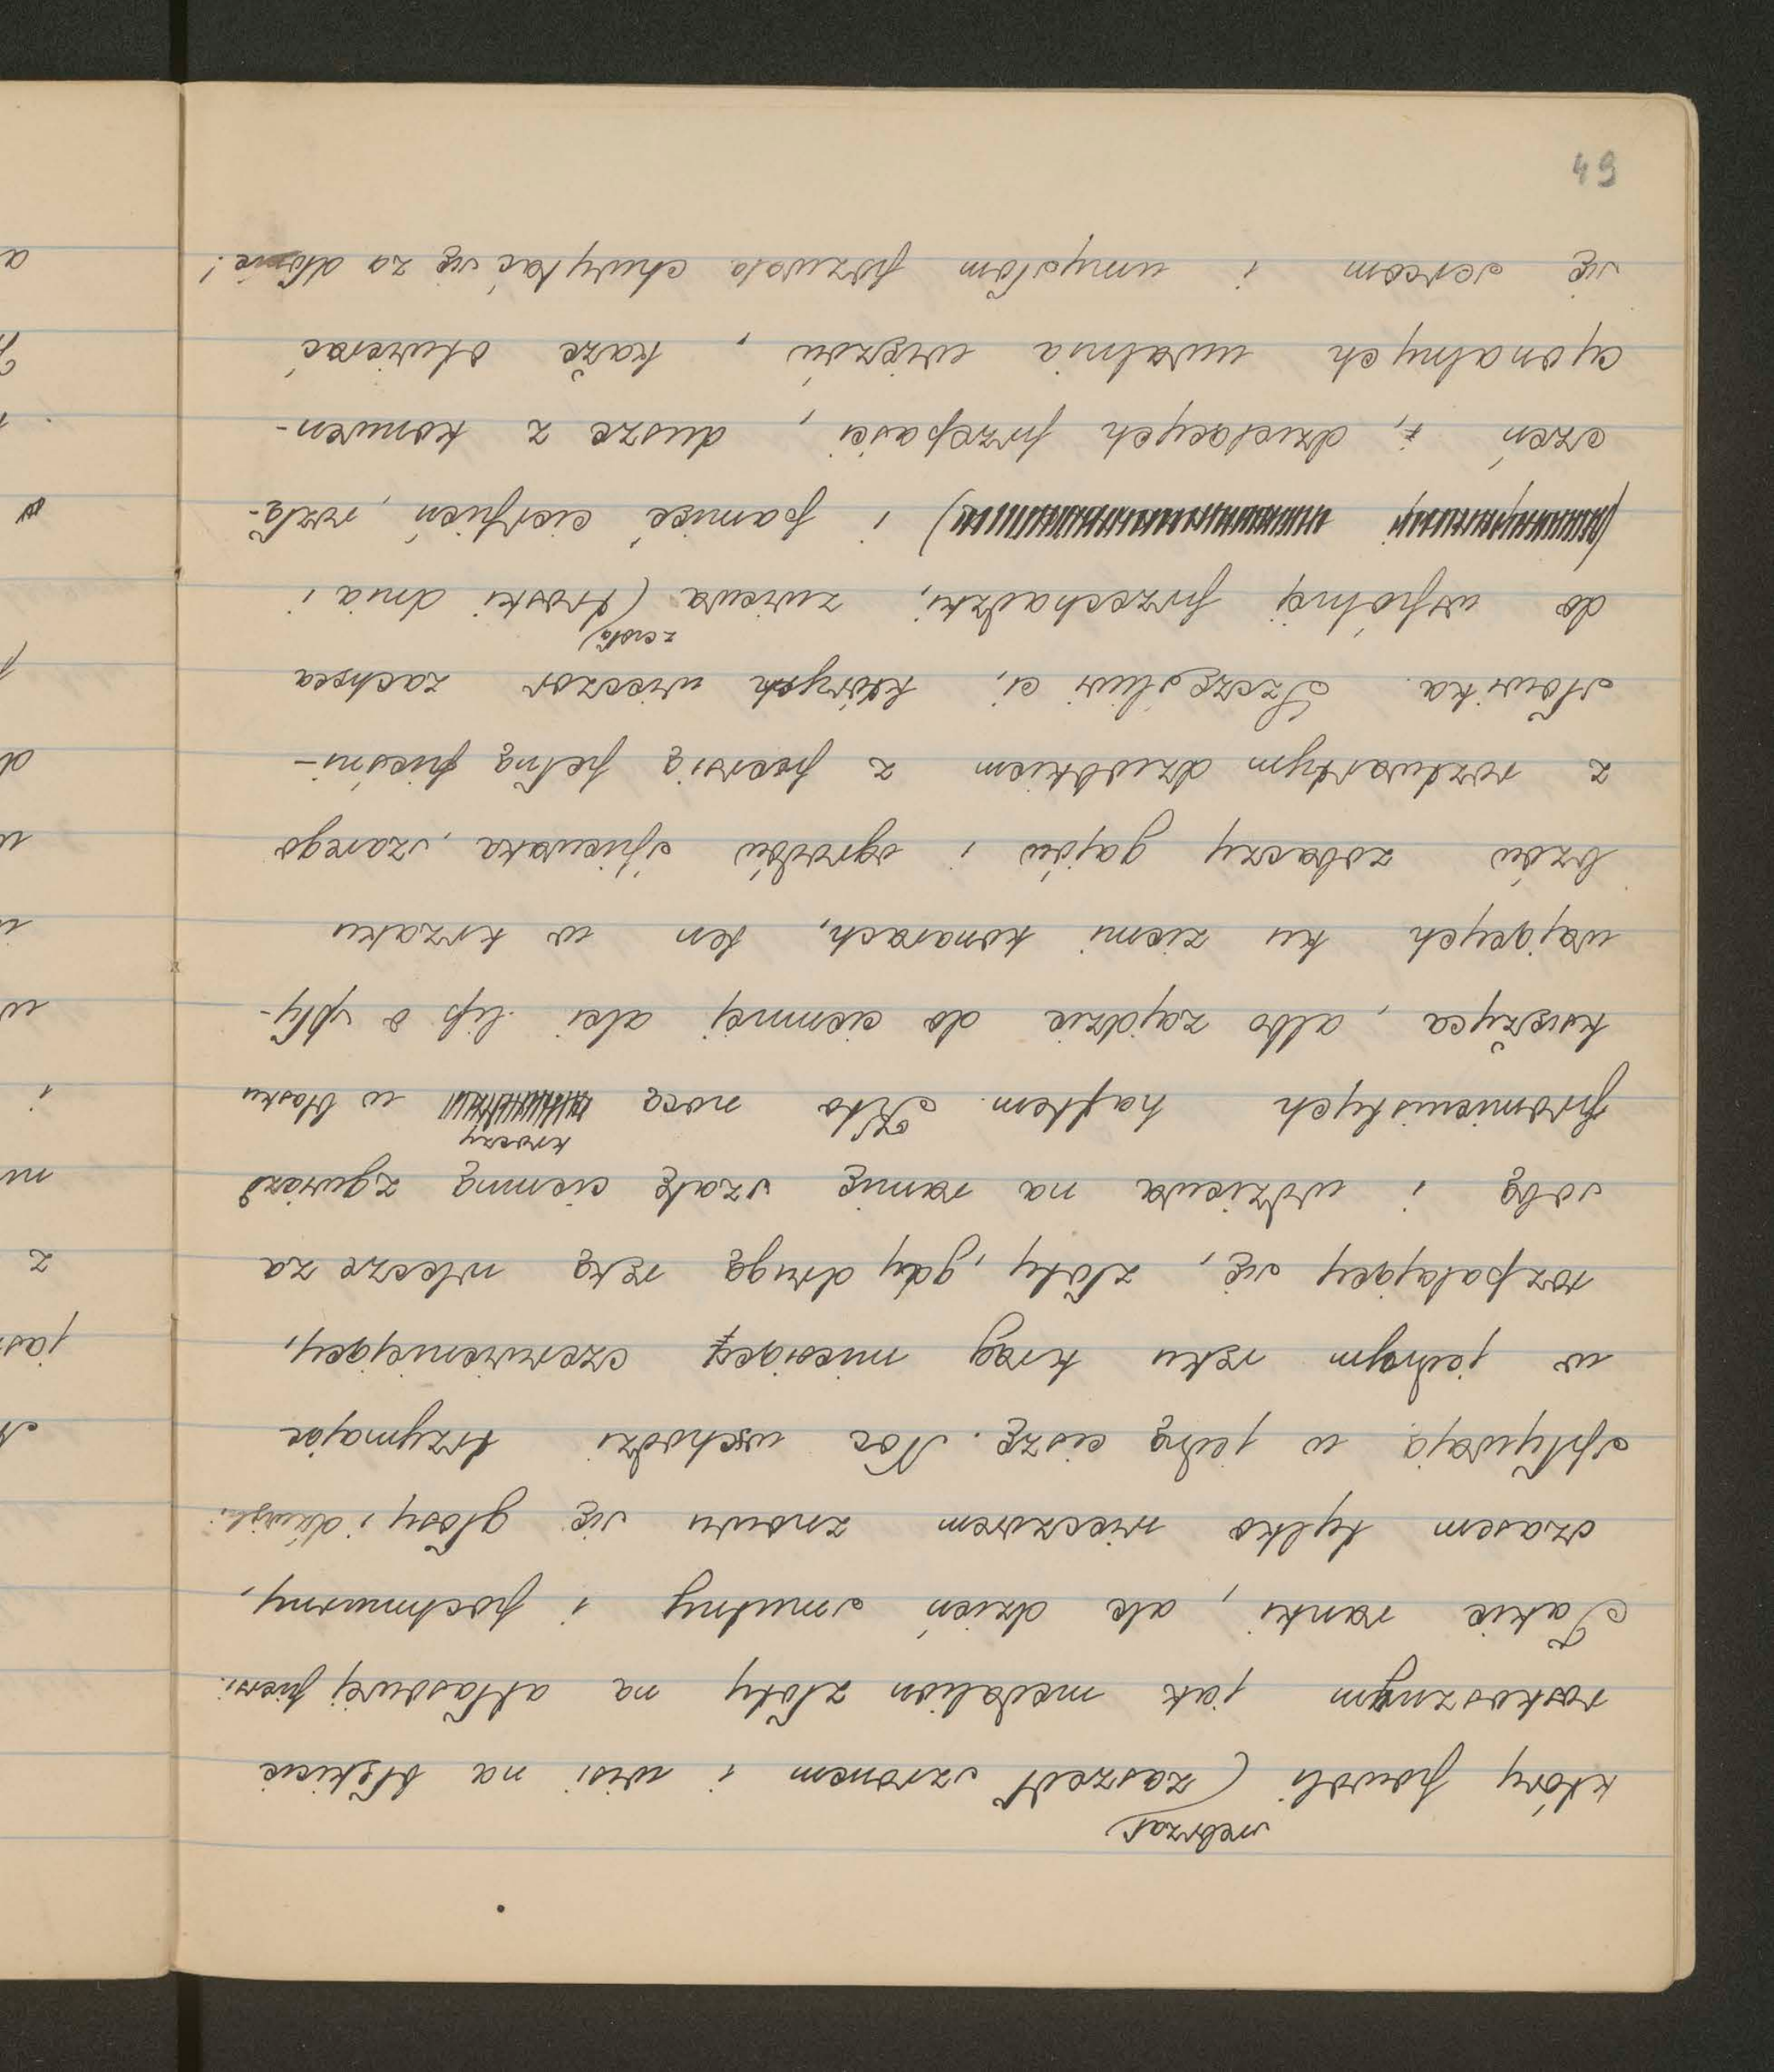 49
srebrząc
który powoli (zaszedł szronem i wisi na błękicie
roskosznym jak medalion złoty na atłasowej piersi.
Takie ranki, ale dzień smutny i pochmurny,
czasem tylko wieczorem znowu się głosy i dźwięki
spływają w jedną ciszę. Noc wschodzi trzymając
w jednym ręku krąg miesięcz czerwieniejący,
rozpalający się, złoty, gdy drugą ręką wlecze za
sobą i wdziewa na ramię szatę ciemną z gwiazd
kroczy
promienistych haftem. Kto nocą w blasku
księżyca, albo zajdzie do ciemnej alei lip o spły-
wających ku ziemi konarach, ten w krzaku
bzów zobaczy gajów i ogrodów śpiewaka, szarego
z rozdwartym dziobkiem z piersią pełną pieśni -
słowika. Szczęśliwi ci, których wieczor zachęca
zcisła)
do wspólnej przechadzki, zwiewa (troski dnia i
) i pamięć cierpień, rozłą-
czeń i, dzielących przepaści, dusze z konwen-
cyonalnych uwalnia więzów, każe otwierać
się sercom i umysłom pozwala chwytać się za dłonie!
jas
z
ni
i
w
u
d
p
a